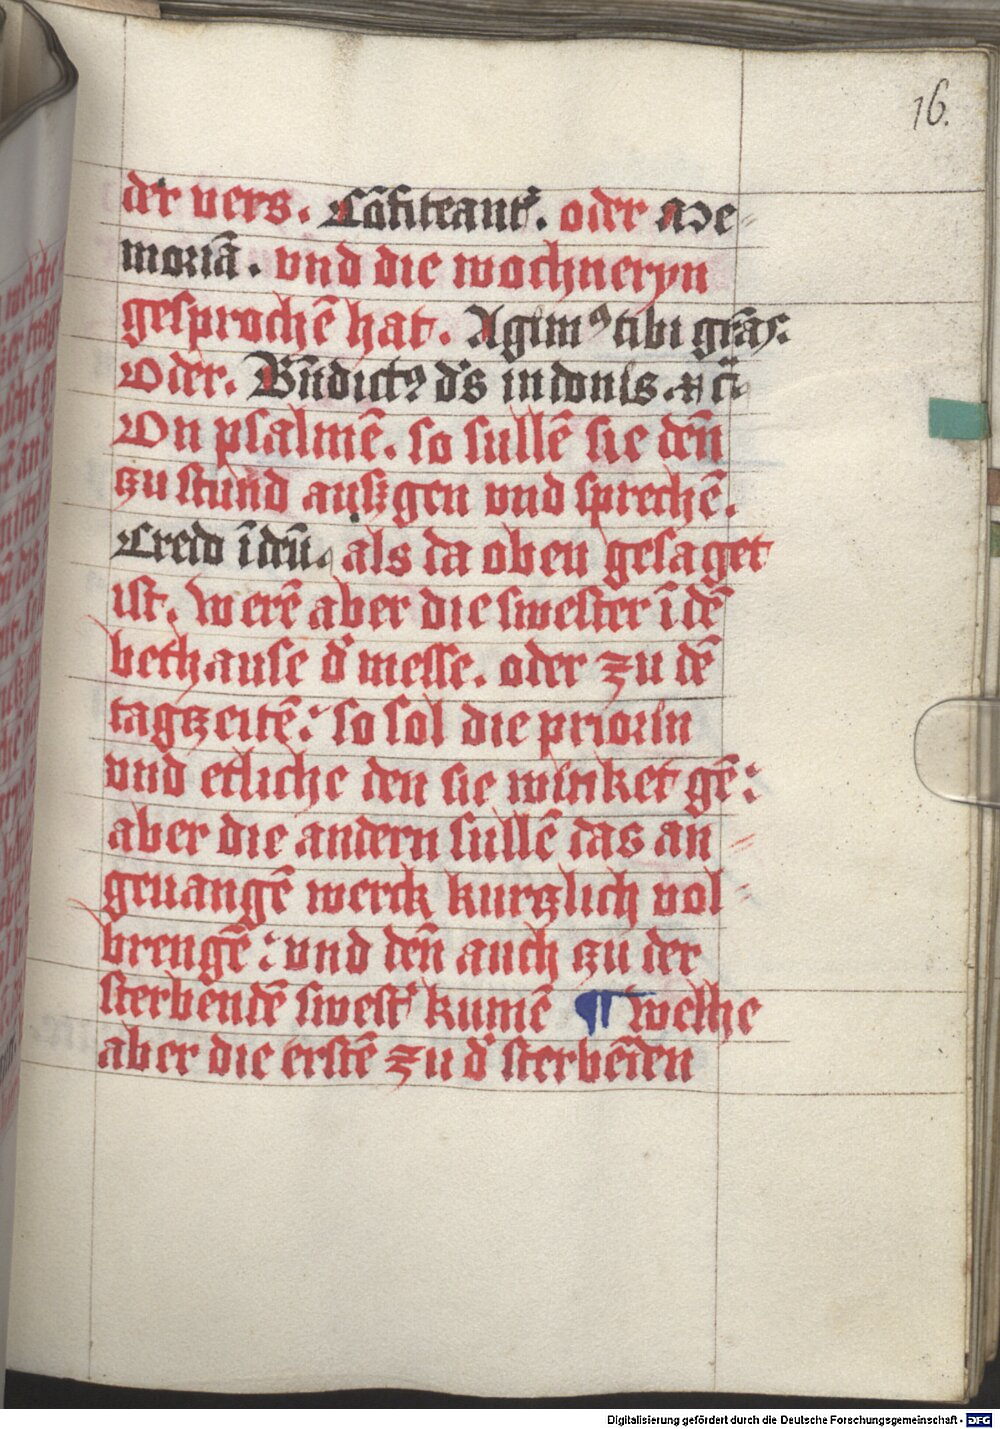 16.
der vers. Cōfiteant᷑. oder Me⸗
moriā. vnd die wochneryn
gesprochē hat. Agimꝰ tibi grās.
Oder. Bn̄dictꝰ dn̄s in donis. ⁊ c̄
On psalmē. so sullē sie den̄
zu stund auszgen vnd sprechē.
Credo ī deū. als da oben gesaget
ist. Werē aber die swester ī dē
bethause d᷑ messe. oder zu dē
tagzeitē: so sol die priorin
vnd etliche den sie winket gē:
aber die andern sullē das an
geuangē werck kurtzlich vol
brengē: vnd den̄ auch zu der
sterbendē swest᷑ kumē ¶ welhe
aber die erstē zu d᷑ sterbēden
Digitalisierung gefördert durch die Deutsche Forschungsgemeinschaft - DFG